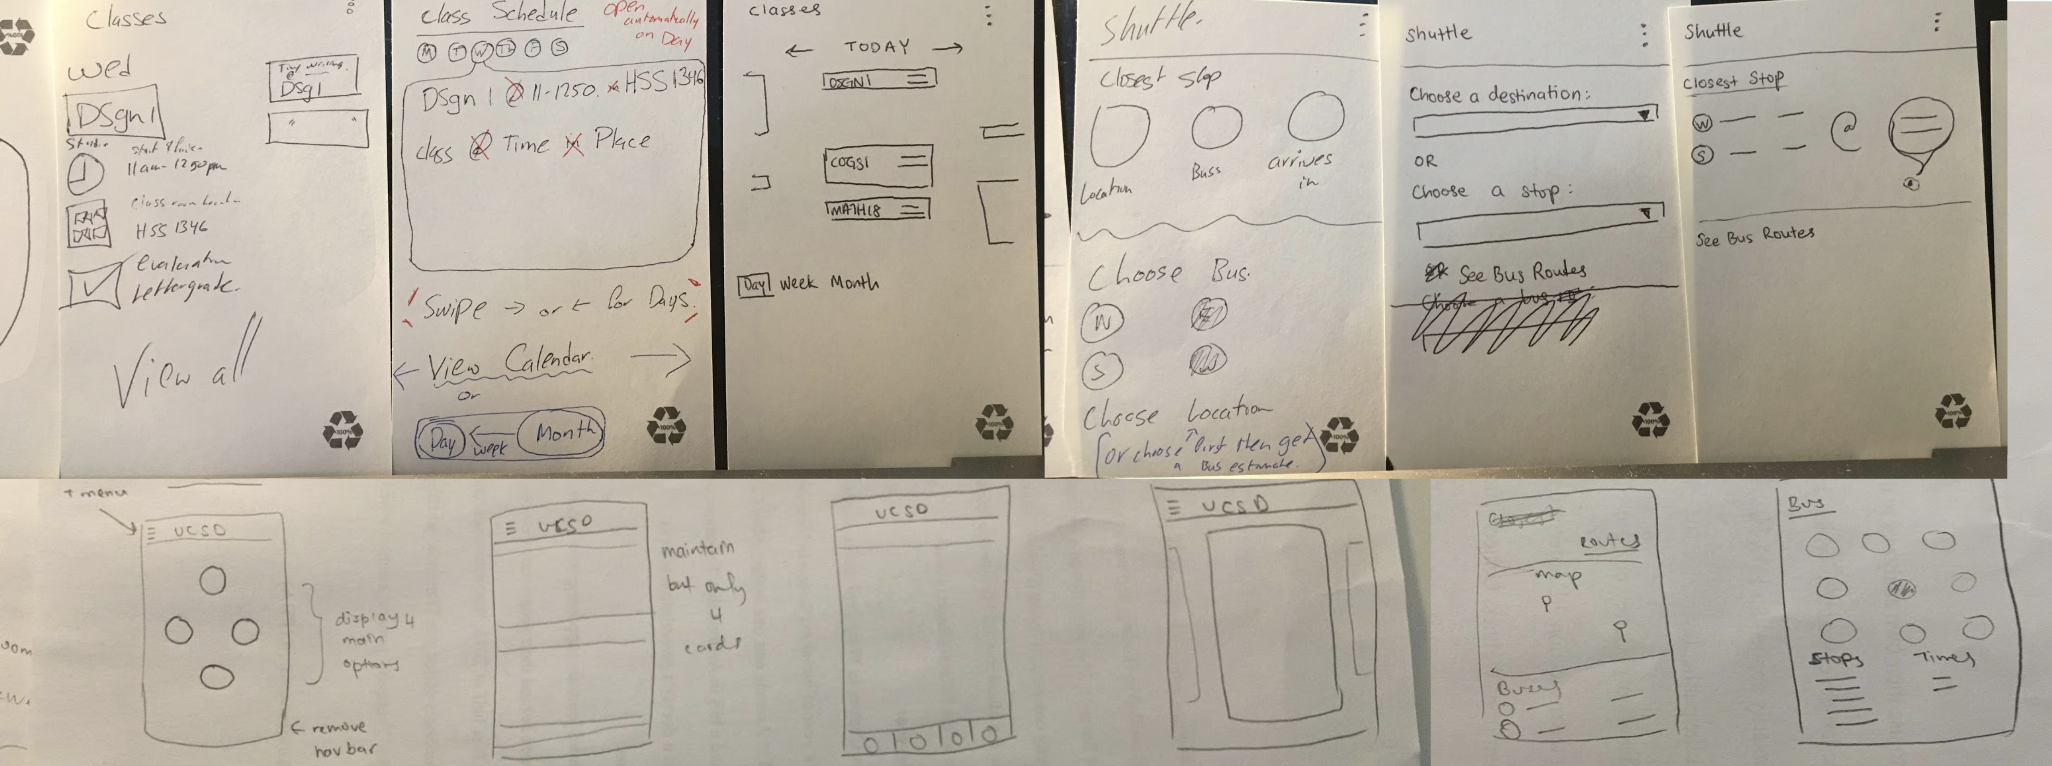 Classes
Wed
DSgn 1
11am - 1250pm
HSS 1346
evaluation
Lettergrade.
View all
Tiny writing.
@
DSg1
" "
100%
class Schedule
open
automatically
on Day
M T W Th F S
Dsgn 1 @ 11-1250. HSS 1346
class @ Time Place
Swipe → or ← for Days.
← View Calendar. →
or
Day ← week Month
100%
Classes
← TODAY →
DSGN1
COGS1
MATH18
Day week Month
100%
Shuttle.
Closest Stop
Location
Buss
arrives
in
Choose Bus.
W
S
Choose Location
(or choose ↑ first then get
a Bus estimate.)
100%
Shuttle
Choose a destination:
OR
Choose a stop:
See Bus Routes
Choose a bus
100%
Shuttle
Closest Stop
W
S
@
See Bus Routes
100%
+ menu
UCSD
display 4
main
options
← remove
nav bar
UCSD
maintain
but only
4
cards
UCSD
UCSD
Routes
map
Buses
Bus
Stops
Times